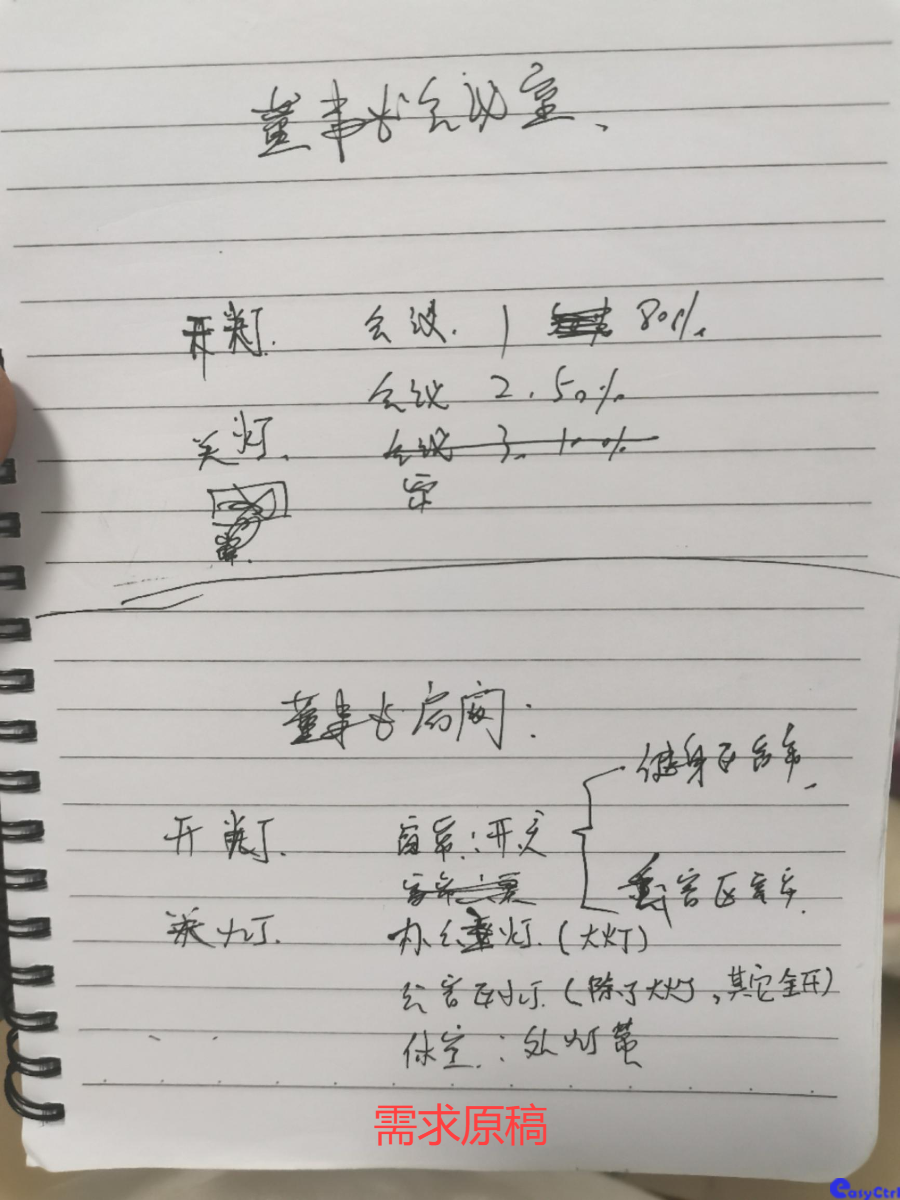 董事长会议室、
开灯. 会议. 1 80%.
会议 2. 50%
关灯. 会议 3. 100%
董事长房间:
健身区窗帘.
开灯. 窗帘: 开关
会客区窗帘.
关灯. 办公灯. (大灯)
会客区灯. (除了大灯, 其它全开)
休室:
需求原稿
easyCtrl